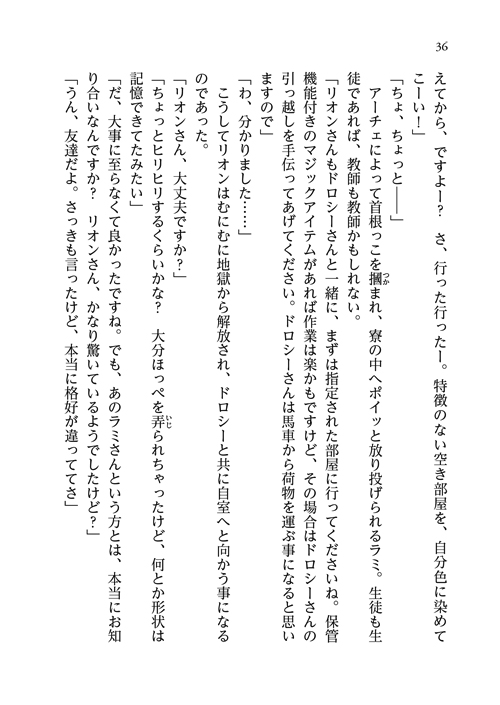 36
えてから、ですよー？　さ、行った行ったー。特徴のない空き部屋を、自分色に染めて
こーい！」
「ちょ、ちょっと――」
　アーチェによって首根っこを摑まれ、寮の中へポイッと放り投げられるラミ。生徒も生
つか
徒であれば、教師も教師かもしれない。
「リオンさんもドロシーさんと一緒に、まずは指定された部屋に行ってくださいね。保管
機能付きのマジックアイテムがあれば作業は楽かもですけど、その場合はドロシーさんの
引っ越しを手伝ってあげてください。ドロシーさんは馬車から荷物を運ぶ事になると思い
ますので」
「わ、分かりました……」
　こうしてリオンはむにむに地獄から解放され、ドロシーと共に自室へと向かう事になる
のであった。
「リオンさん、大丈夫ですか？」
「ちょっとヒリヒリするくらいかな？　大分ほっぺを弄られちゃったけど、何とか形状は
いじ
記憶できてたみたい」
「だ、大事に至らなくて良かったですね。でも、あのラミさんという方とは、本当にお知
り合いなんですか？　リオンさん、かなり驚いているようでしたけど？」
「うん、友達だよ。さっきも言ったけど、本当に格好が違っててさ」